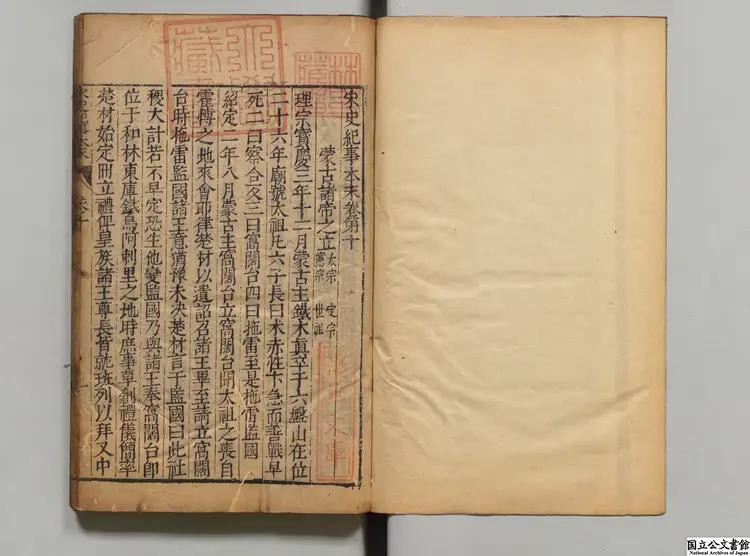 宋史紀事本末卷第十
蒙古諸帝之立 太宗 定宗 憲宗 世祖
理宗寶慶三年十二月蒙古主鐵木真卒于六盤山在位
二十六年廟號太祖凡六子長曰术赤性卞急而善戰早
死二曰察合台三曰窩闊台四曰拖雷至是拖雷監國
紹定二年八月蒙古主窩闊台立窩闊台聞太祖之喪自
霍博之地來會耶律楚材以遺詔召諸王畢至請立窩闊
台時拖雷監國諸王意猶豫未決楚材言于監國曰此社
稷大計若不早定恐生他變監國乃與諸王奉窩闊台即
位于和林東庫鐵烏阿剌里之地時庶事草創禮儀簡率
楚材始定冊立禮俾皇族諸王尊長皆就班列以拜又中
卷十
国立公文書館
National Archives of Japan